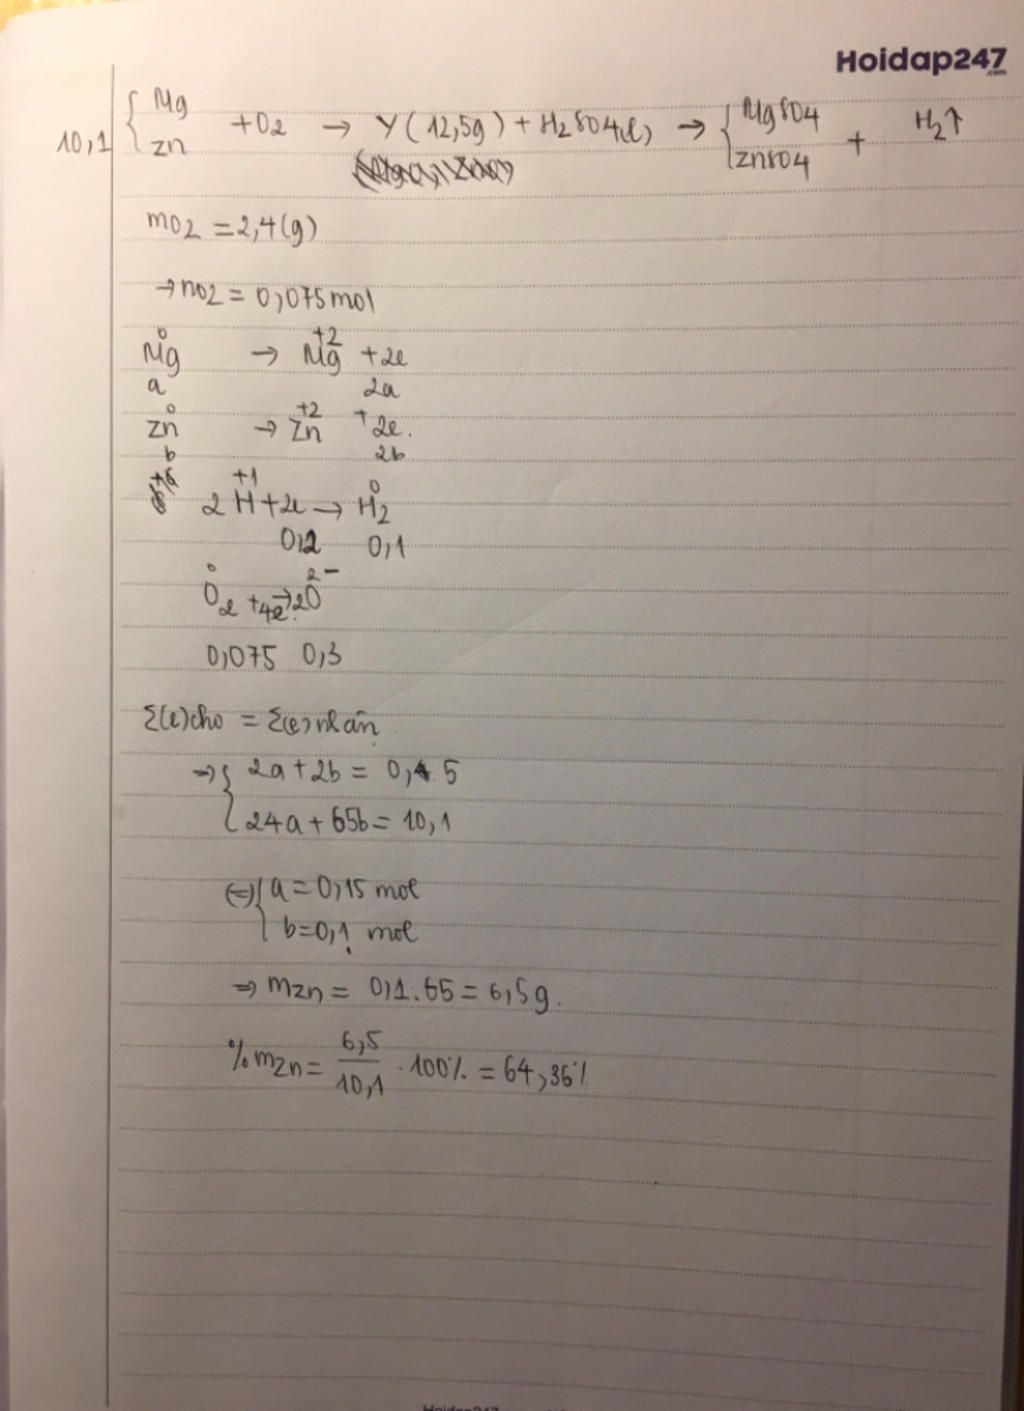 Hoidap247
.com
10,1 { Mg Zn + O2 → Y (12,5g) + H2SO4(l) → { MgSO4 ZnSO4 + H2↑
mO2 = 2,4(g)
→ nO2 = 0,075 mol
0 +2
Mg → Mg + 2e
a 2a
0 +2
Zn → Zn + 2e.
b 2b
+6 +1 0
2H + 2e → H2
0,2 0,1
0 2-
O2 + 4e → 2O
0,075 0,3
Σ(e)cho = Σ(e)nhận
⇒ { 2a + 2b = 0,5
24a + 65b = 10,1
(=) { a = 0,15 mol
b = 0,1 mol
⇒ mZn = 0,1.65 = 6,5g.
%mZn = 6,5/10,1 . 100% = 64,36%
Hoidap247